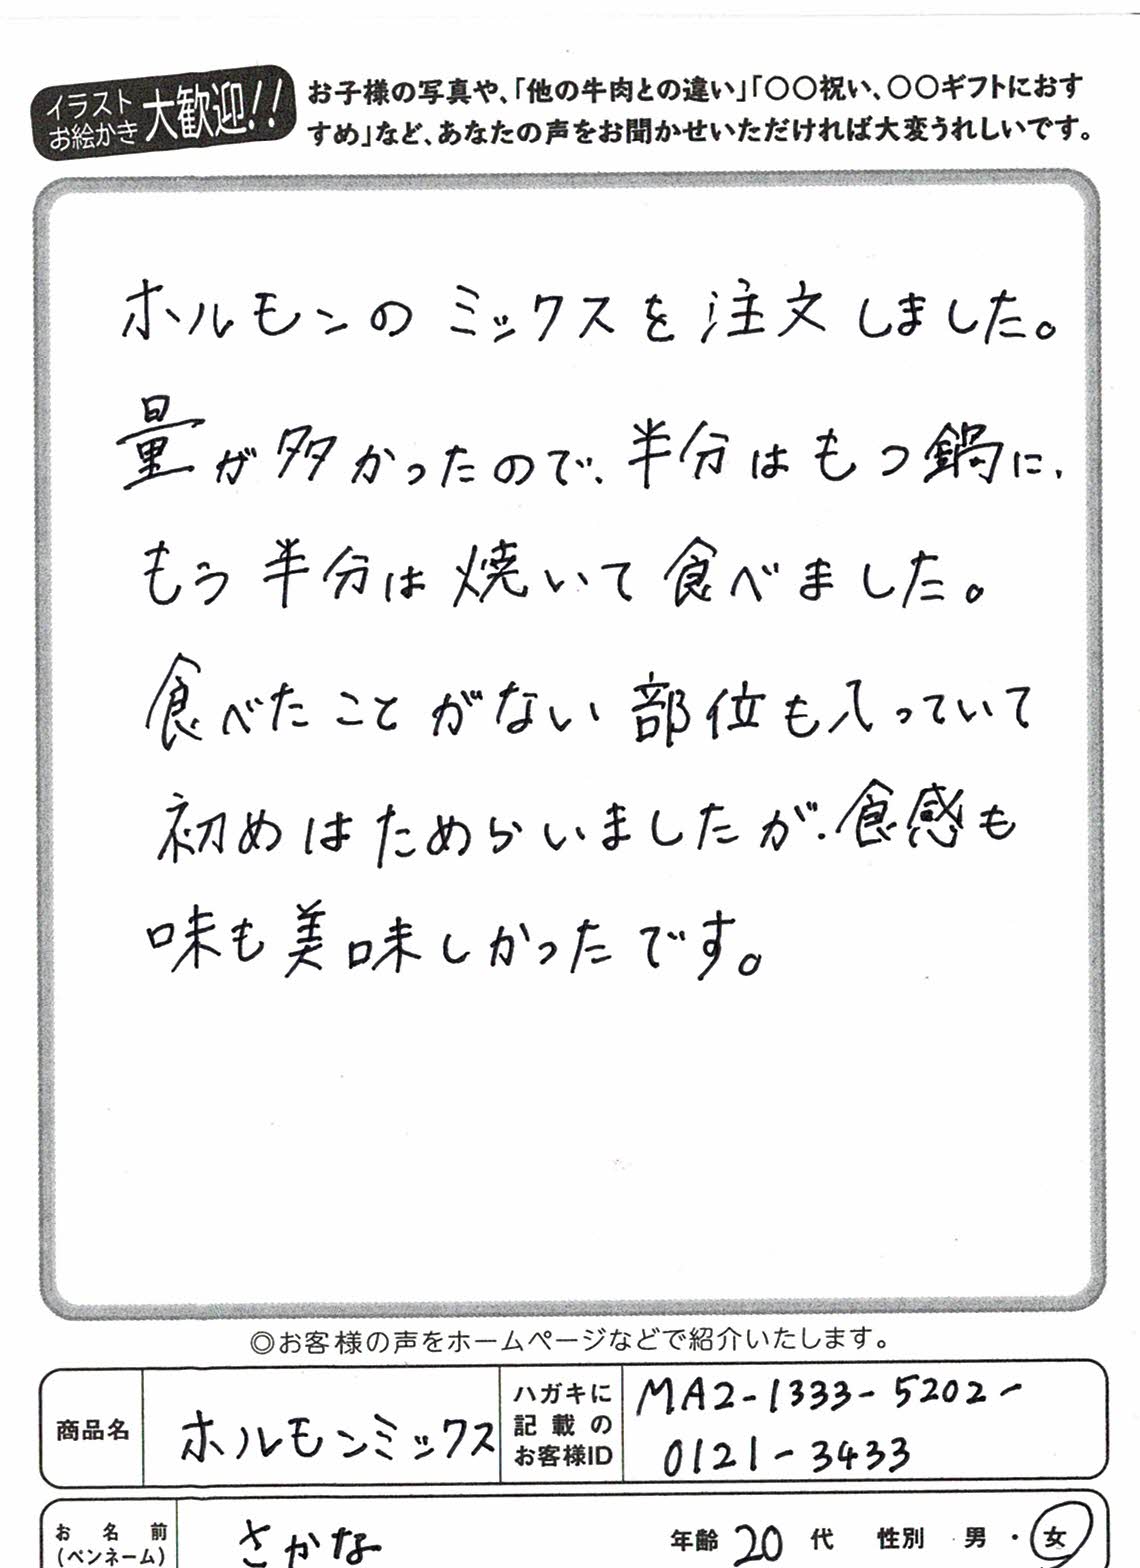 イラスト
お絵かき
大歓迎!!
お子様の写真や、「他の牛肉との違い」「〇〇祝い、〇〇ギフトにおす
すめ」など、あなたの声をお聞かせいただければ大変うれしいです。
ホルモンのミックスを注文しました。
量が多かったので、半分はもつ鍋に、
もう半分は焼いて食べました。
食べたことがない部位も入っていて
初めはためらいましたが、食感も
味も美味しかったです。
◎お客様の声をホームページなどで紹介いたします。
商品名
ホルモンミックス
ハガキに
記載の
お客様ID
MA2-1333-5202-
0121-3433
お名前
(ペンネーム)
さかな
年齢 20 代 性別 男・女